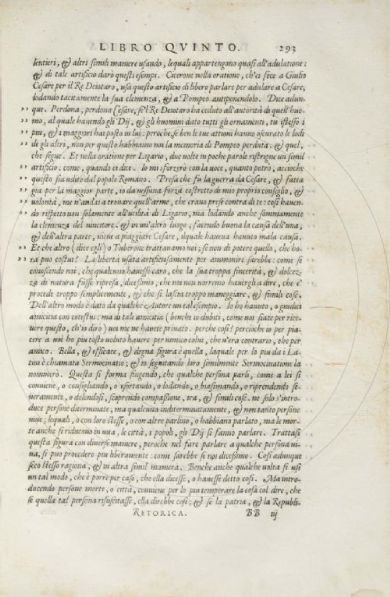 LIBRO QVINTO. 293
lentieri, & altri simili maniere usando, lequali appartengano quasi all'adulatione:
& di tale artificio darò questi esempi. Cicerone nella oratione, ch'ei fece a Giulio
Cesare per il Re Deiotaro, usa questo artificio di libero parlare per adulare a Cesare,
lodando tacitamente la sua clemenza, & a Pompeo antiponendolo. Dice adun-
que. Perdona, perdona Cesare, se'l Re Deiotaro ha ceduto all'autorità di quell'huo-
mo, al quale havendo gli Dij, & gli huomini dato tutti gli ornamenti, tu istesso i
più, & i maggiori hai posto in lui: perioche se ben le tue attioni hanno oscurato le lodi
di gli altri, non per questo habbiamo noi la memoria di Pompeo perduta. & quel,
che segue. Et nella oratione per Ligario, due volte in poche parole restrigne un simil
artificio. come, quando ei dice. Io mi sforzerò con la voce, quanto potrò, accioche
questo sia udito dal popolo Romano. Presa che fu la guerra da Cesare, & fatta
già per la maggior parte, io da nessuna forza costretto di mio proprio consiglio, &
volontà, me n'andai a trovare quell'arme, che erano prese contra di te: così haven-
do rispetto non solamente all'utilità di Ligario, ma lodando anche sommamente
la clemenza del vincitore. & in un'altro luogo, facendo buona la causa dell'una,
& dell'altra parte, viene a piaggiare Cesare, ilquale haveva havuto mala causa.
Et che altro (dice egli) o Tuberone trattavamo noi; se non di potere quello, che ho-
ra può costui? La libertà usata artificiosamente per ammonire sarebbe: come se
conoscendo noi, che qualcuno havesse caro, che la sua troppa sincerità, & dolcez-
za di natura fusse ripresa, dicessimo, che noi non vorremo havergli a dire, che e'
procede troppo semplicemente, & che si lascia troppo maneggiare. & simili cose.
Dell'altro modo è dato da qualche autore un tal esempio. Io ho havuto, o giudici
amicitia con costui: ma di tale amicitia (benche io dubiti, come voi siate per rice-
vere questo, ch'io dirò) voi me ne havete privato. perche così? percioche io per pia-
cere a voi ho più tosto voluto havere per nimico colui, che n'era contrario, che per
amico. Bella, & efficace, & degna figura è quella, laquale per lo più da i La-
tini è chiamata Sermocinatio; & io seguitando loro similmente Sermocinatione la
nominerò. Questa si forma fingendo, che qualche persona parli, come a lei si
conviene, o consigliando, o esortando, o lodando, o biasimando, o riprendendo se-
veramente, o dolendosi, scoprendo compassione, ira, & simili cose. ne solo s'intro-
duce persone determinate, ma qualcuna indeterminatamente, & non tanto persone
vive; lequali, o con loro stesse, o con altre parlino, o habbiano parlato, ma le mor-
te anche si riducono in vita, le città, i popoli, gli Dij si fanno parlare. Trattasi
questa figura con diverse maniere, perche nel fare parlare a qualche persona vi-
va, si può procedere più liberamente: come sarebbe se noi dicessimo. Così adunque
seco stesso ragiona, & in altra simil maniera. Benche anche qualche volta si usi
un tal modo, che è porre per caso, che ella dicesse, o havesse detto così. Ma intro-
ducendo persone morte, o città, conviene per lo più temperare la cosa col dire, che
se quella tal persona risuscitasse, ella direbbe così; & se la patria, & la Republi-
RETORICA. BB iij